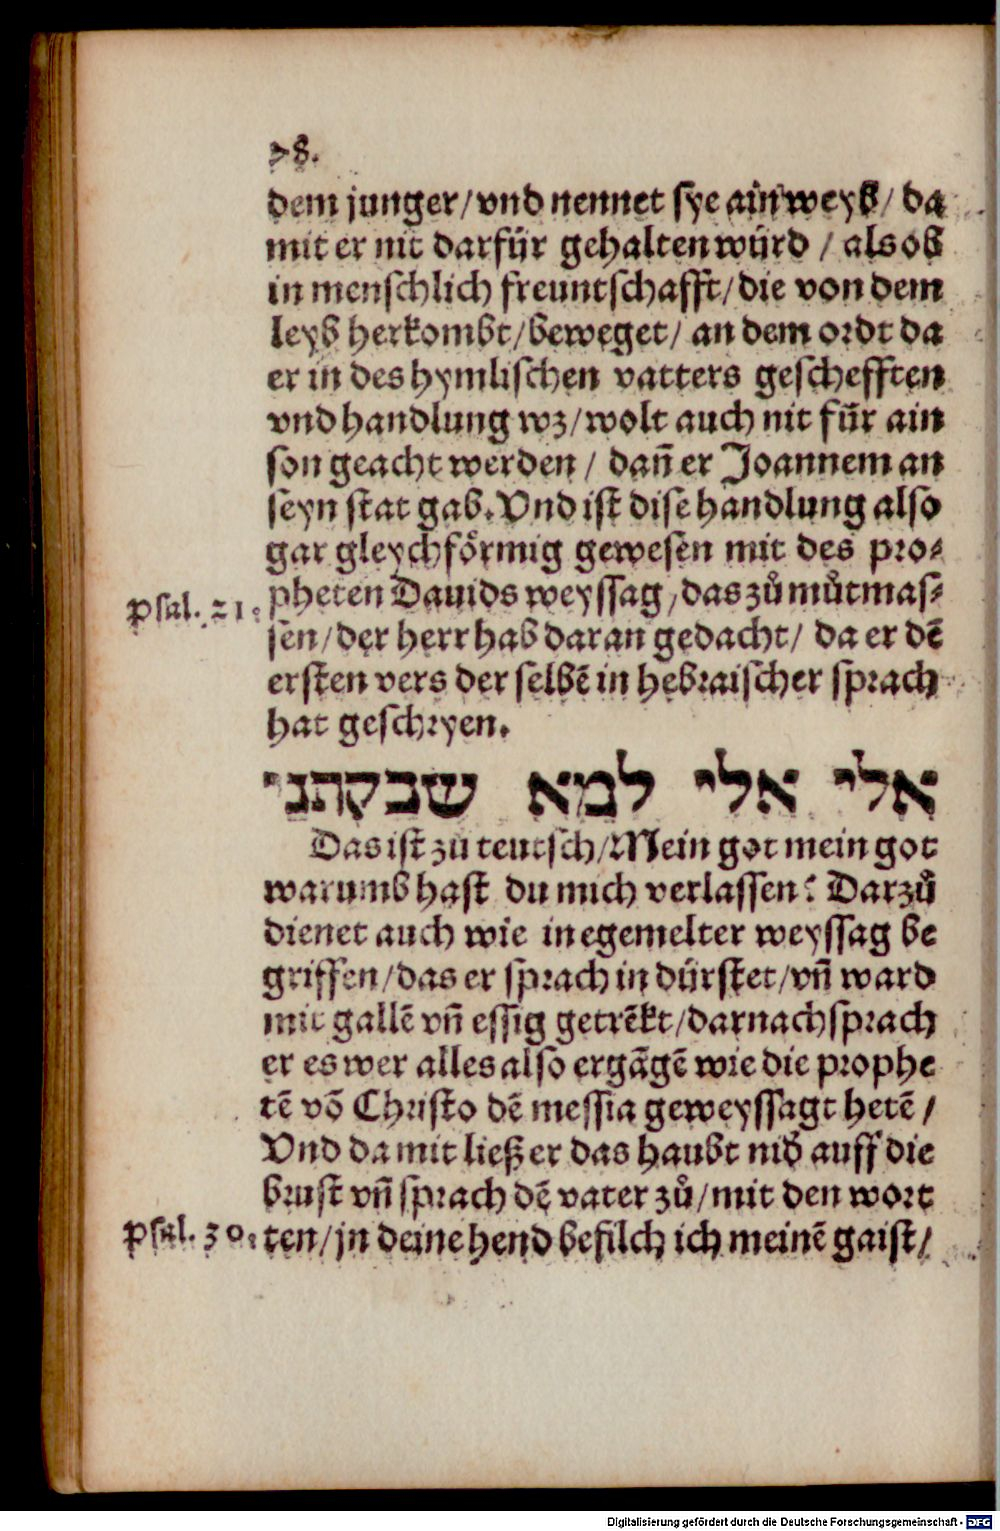 78.
dem junger/vnd nennet sye ain weyb/da
mit er nit darfür gehalten würd / als ob
in menschlich freuntschafft/die von dem
leyb herkombt/beweget/ an dem ordt da
er in des hymlischen vatters geschefften
vnd handlung wz/wolt auch nit für ain
son geacht werden / dañ er Joannem an
seyn stat gab. Vnd ist dise handlung also
gar gleychförmig gewesen mit des pro⸗
Psal. 21. pheten Dauids weyssag/das zů můtmas⸗
sen/der herr hab daran gedacht/ da er dē
ersten vers der selbē in hebraischer sprach
hat geschryen.
אלי אלי למא שבקתני
Das ist zů teutsch/Mein got mein got
warumb hast du mich verlassen? Darzů
dienet auch wie in egemelter weyssag be
griffen/das er sprach in dürstet/vñ ward
mit gallē vñ essig getrēkt/darnach sprach
er es wer alles also ergāgē wie die prophe
tē vō Christo dē messia geweyssagt hetē /
Vnd da mit ließ er das haubt nid̕ auff die
brust vñ sprach dē vater zů/mit den wort
Psal. 30. ten/jn deine hend befilch ich meinē gaist/
Digitalisierung gefördert durch die Deutsche Forschungsgemeinschaft - DFG